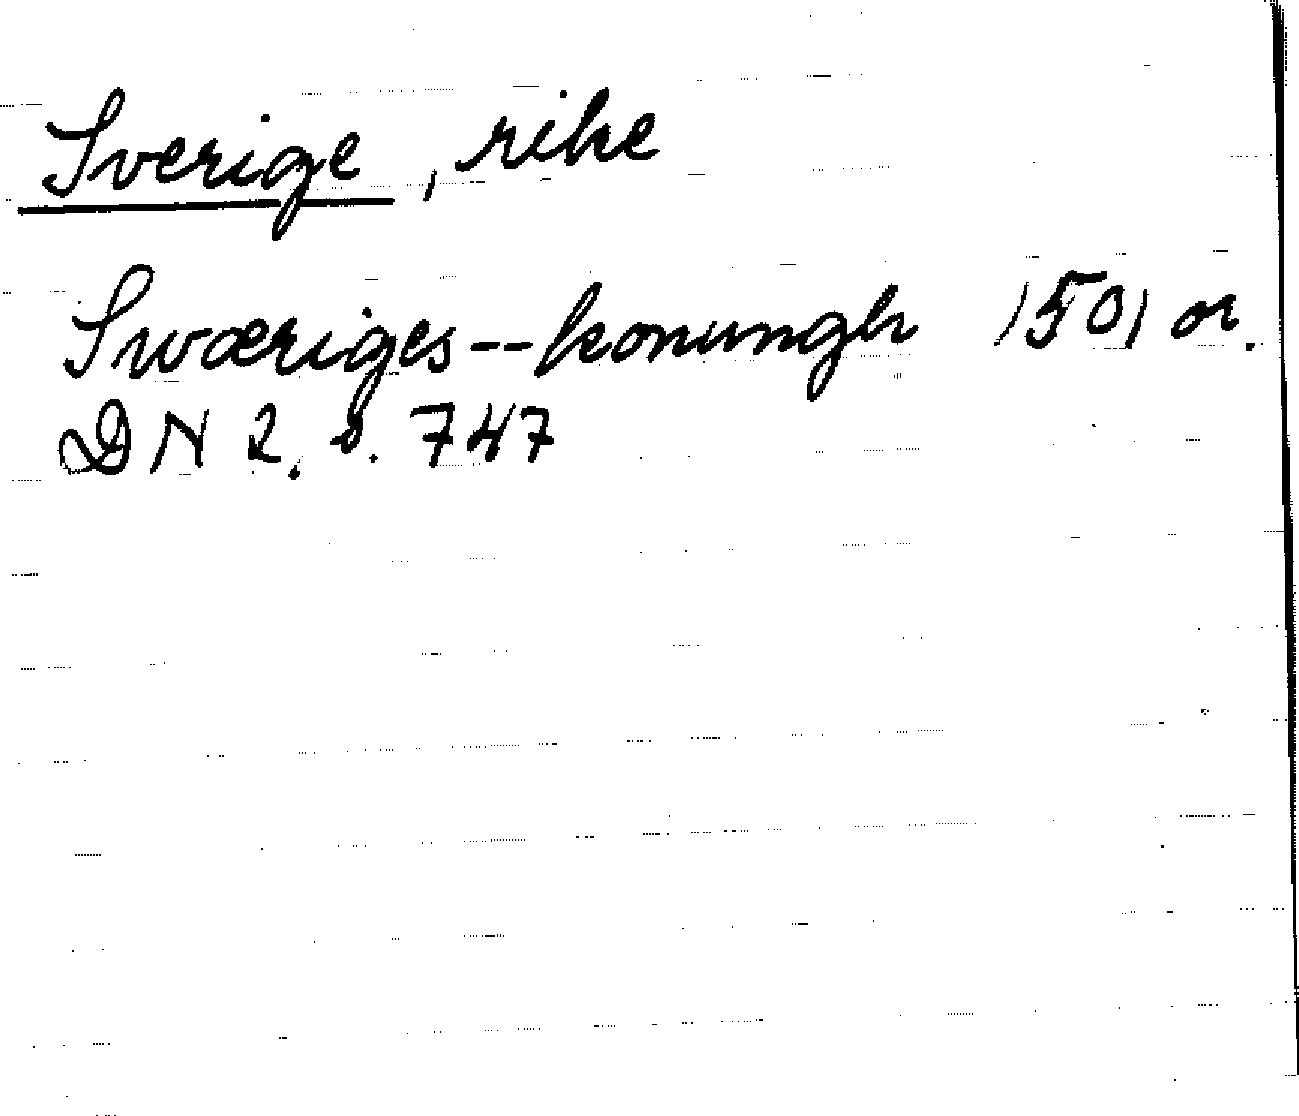 Sverige, rike
Swæriges--konungh 1501 or.
DN 2. s. 747